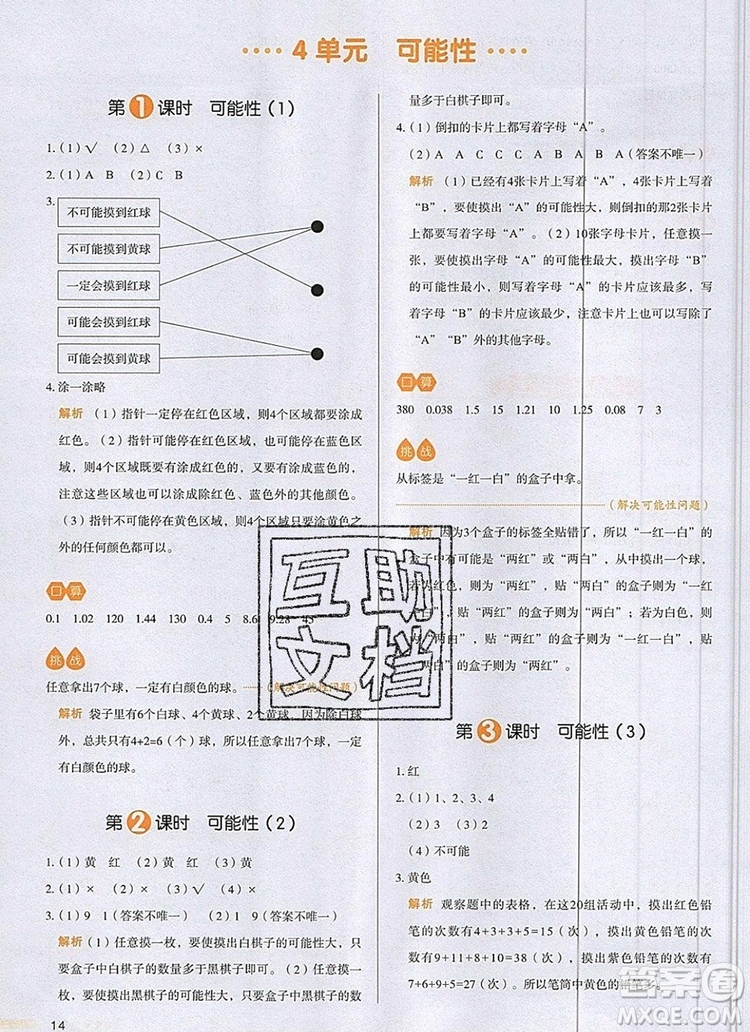 4单元 可能性
第1课时 可能性(1)
1.(1)√ (2)△ (3)×
2.(1)A B (2)C B
3.
不可能摸到红球
不可能摸到黄球
一定会摸到红球
可能会摸到红球
可能会摸到黄球
4.涂一涂略
解析 (1)指针一定停在红色区域，则4个区域都要涂成
红色。(2)指针可能停在红色区域，也可能停在蓝色区
域，则4个区域既要有涂成红色的，又要有涂成蓝色的，
注意这些区域也可能涂成除红色、蓝色外的其他颜色。
(3)指针不可能停在黄色区域，则4个区域涂除黄色之
外的任何颜色都可以。
口算
0.1 1.02 120 1.44 130 0.4 5 8.6 9.28 45
挑战
任意拿出7个球，一定有白颜色的球。(解决可能性问题)
解析 袋子里有6个白球、4个黄球、2个绿球。因为除白球
外，总共只有4+2=6(个)球，所以任意拿出7个球，一定有
白颜色的球。
第2课时 可能性(2)
1.(1)黄 红 (2)黄 红 (3)黄
2.(1)× (2)× (3)√ (4)×
3.(1)9 1(答案不唯一) (2)1 9(答案不唯一)
解析 (1)任意摸一枚，要使摸出白棋子的可能性大，只
要盒子中白棋子的数量多于黑棋子即可。(2)任意摸一
枚，要使摸出黑棋子的可能性大，只要盒子中黑棋子的数
14
量多于白棋子即可。
4.(1)倒扣的卡片上都写着字母“A”。
(2)A A C C C A B A B A(答案不唯一)
解析 (1)已经有4张卡片上写着“A”，4张卡片上写着
“B”，要使摸出“A”的可能性大，则倒扣的2张卡片上
都写着字母“A”。(2)10张卡片写字母，任意摸一
张，要使摸出字母“A”的可能性最大，摸出字母“B”的
可能性最小，则写着字母“A”的卡片应该最多，写着字
母“B”的卡片应该最少，还有一部分卡片上可能写了除
“A”“B”外的其他字母。
口算
380 0.038 1.5 15 1.21 10 1.25 0.08 7 3
挑战
从标签是“一红一白”的盒子中拿。
(解决可能性问题)
解析 因为3个盒子的标签全贴错了，所以“一红一白”的
盒子中有可能是“两红”或“两白”，从中任意摸出一个球，
若为红色，则为“两红”，贴“两白”的盒子则为“一红一
白”，贴“两红”的盒子则为“两白”；若为白色，则为“两
白”，贴“两红”的盒子则为“一红一白”，贴“两白”的盒
子则为“两红”。
第3课时 可能性(3)
1.红
2.(1)1、2、3、4
(2)3 (3)2
(4)不可能
3.黄色
解析 观察题中的表格，在这20组活动中，摸出红色铅
笔的次数有4+3+3+5=15(次)，摸出黄色铅笔的次数有
9+11+8+10=38(次)，摸出紫色铅笔的次数有
7+6+9+5=27(次)，所以笔筒中黄色的铅笔多。
互助
文档
答案圈
MXQE.COM